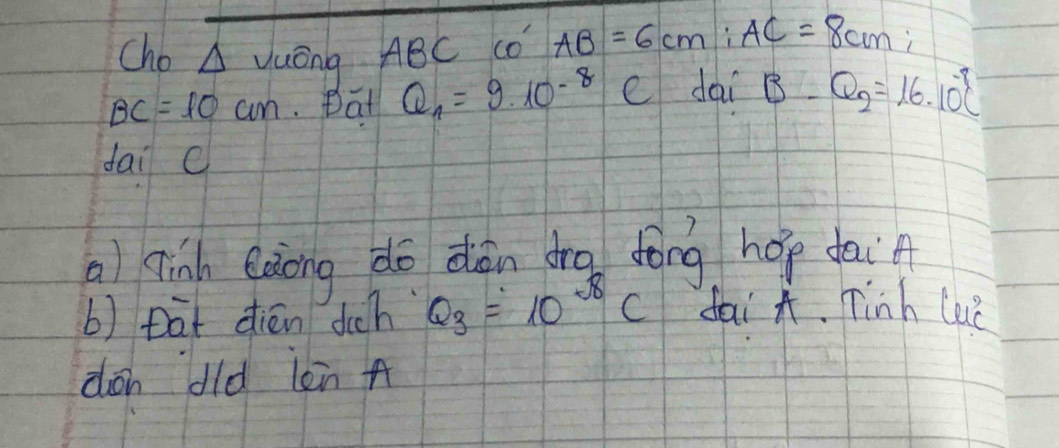 Cho Δ vuông ABC có AB = 6cm; AC = 8cm;
BC = 10 cm. Đặt Q₁ = 9.10⁻⁸ C tại B. Q₂ = 16.10⁻⁸C
tại C
a) Tính cường độ điện trg tổng hợp tại A
b) Đặt điện tích Q₃ = 10⁻⁸ C tại A. Tính lực
điện t/d lên A